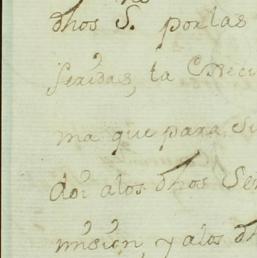 dhos S. por las
feridas, la Creci
ma que para su
dor alos dhos Se
mision, y alos dh